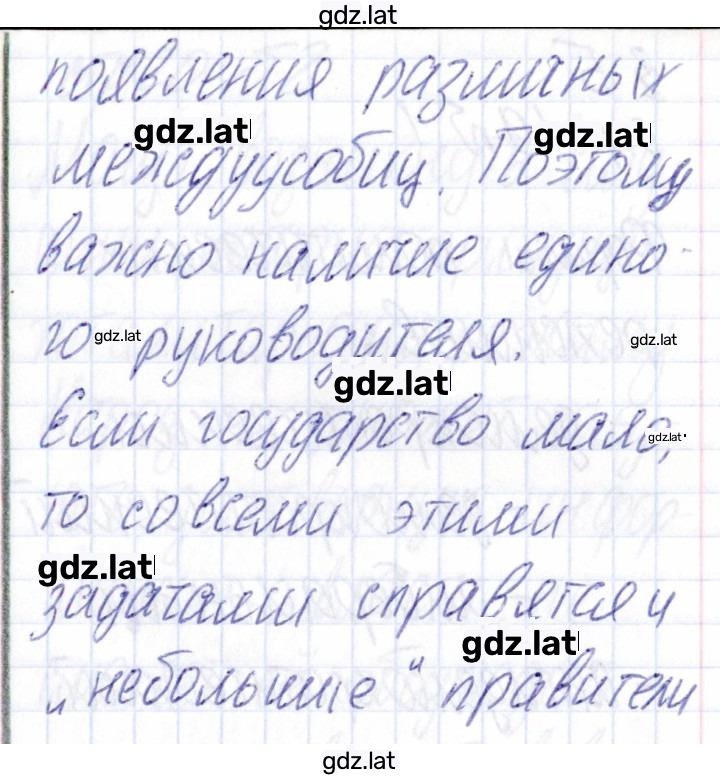 gdz.lat
появления различных
gdz.lat gdz.lat
междуусобиц. Поэтому
важно наличие едино-
го руководителя.
gdz.lat gdz.lat
gdz.lat
Если государство мало,
gdz.lat
то со всеми этими
gdz.lat
задачами справятся и
gdz.lat
„небольшие“ правители
gdz.lat